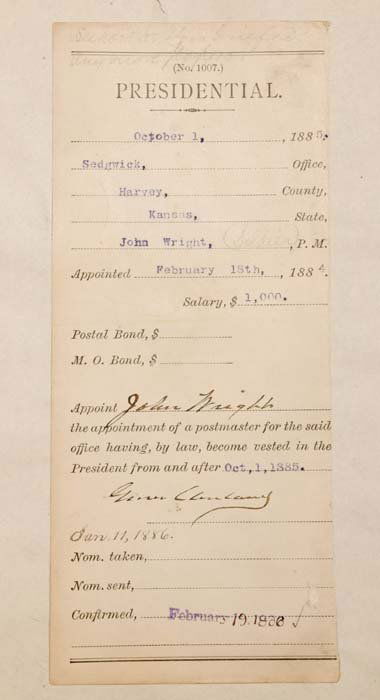 (No. 1007.)
PRESIDENTIAL.
October 1, , 1885.
Sedgwick, Office,
Harvey, County,
Kansas, State,
John Wright, , P. M.
Appointed February 18th, , 1884.
Salary, $ 1,000.
Postal Bond, $
M. O. Bond, $
Appoint John Wright
the appointment of a postmaster for the said
office having, by law, become vested in the
President from and after Oct,1,1885.
Grover Cleveland
Jan. 11, 1886.
Nom. taken,
Nom. sent,
Confirmed, February 19, 1886